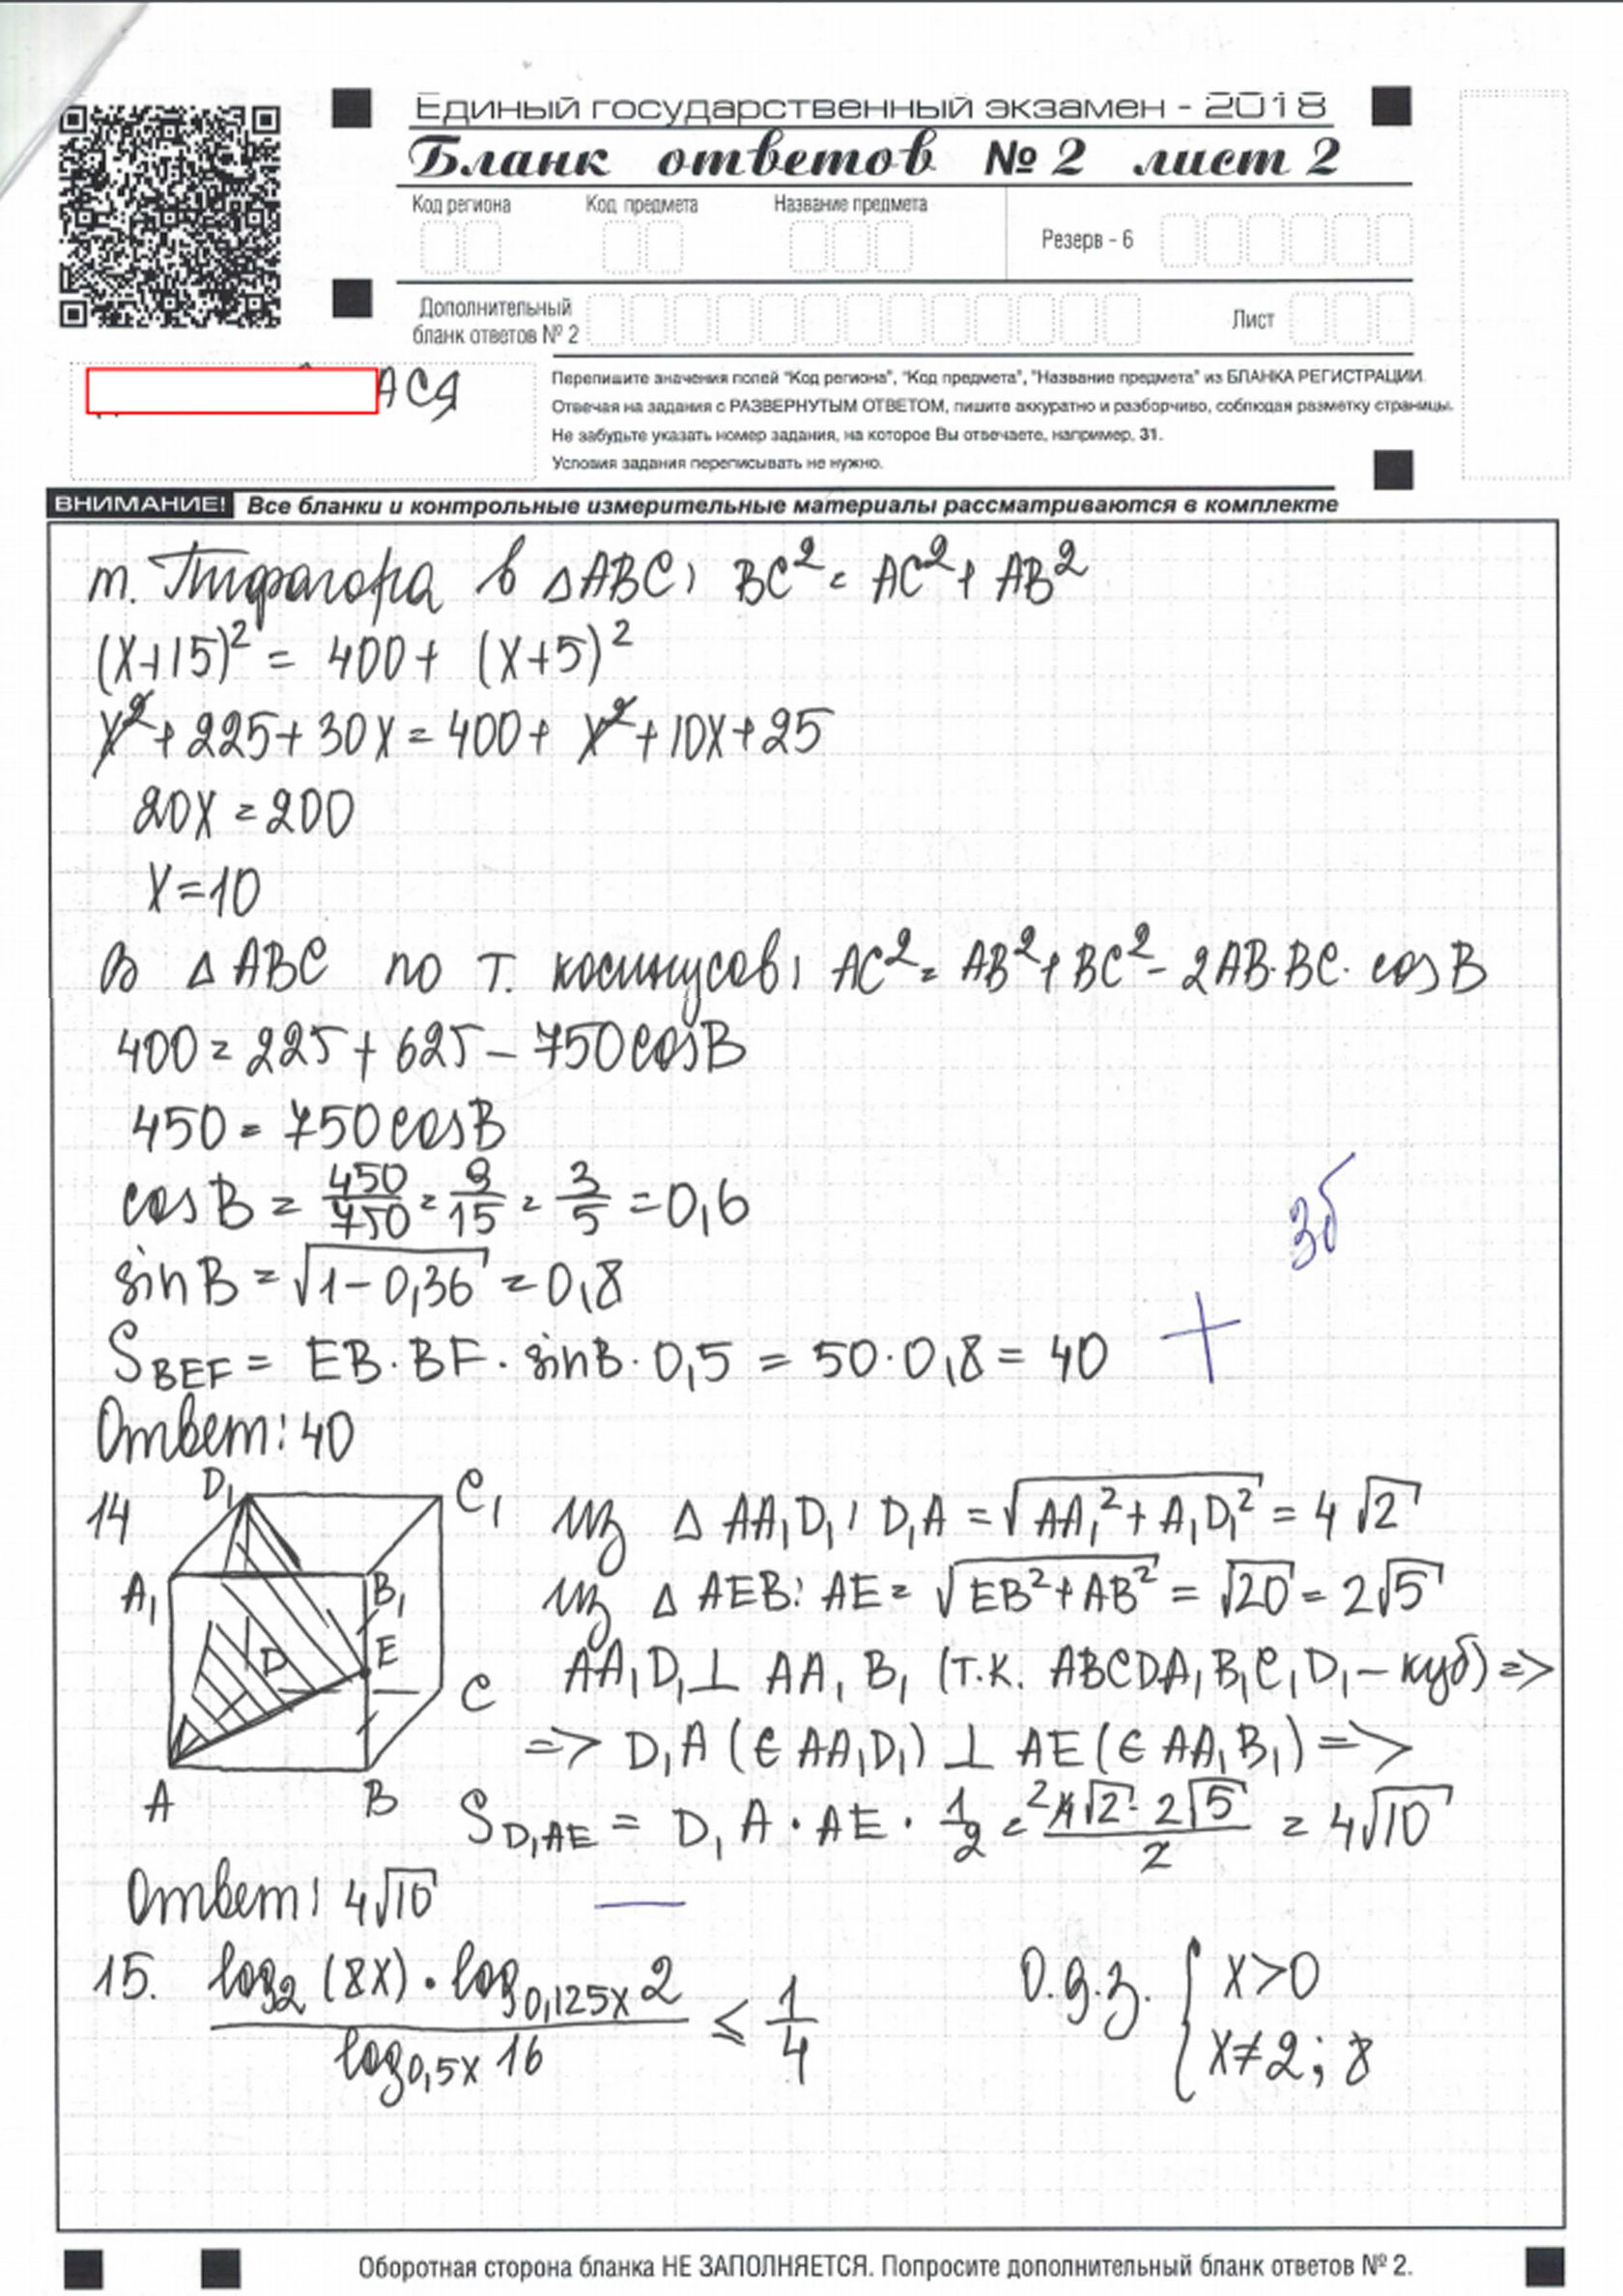 Единый государственный экзамен - 2018
Бланк ответов № 2 лист 2
Код региона Код предмета Название предмета
Резерв - 6
Дополнительный бланк ответов № 2
Лист
АСЯ
Перепишите значения полей "Код региона", "Код предмета", "Название предмета" из БЛАНКА РЕГИСТРАЦИИ.
Отвечая на задания с РАЗВЕРНУТЫМ ОТВЕТОМ, пишите аккуратно и разборчиво, соблюдая разметку страницы.
Не забудьте указать номер задания, на которое Вы отвечаете, например, 31.
Условия задания переписывать не нужно.
ВНИМАНИЕ! Все бланки и контрольные измерительные материалы рассматриваются в комплекте
т. Пифагора в △ABC: BC² = AC² + AB²
(x+15)² = 400 + (x+5)²
x² + 225 + 30x = 400 + x² + 10x + 25
20x = 200
x = 10
В △ABC по т. косинусов: AC² = AB² + BC² - 2AB·BC·cosB
400 = 225 + 625 - 750cosB
450 = 750cosB
cosB = 450/750 = 9/15 = 3/5 = 0,6
3б
sinB = √(1-0,36) = 0,8
S_BEF = EB·BF·sinB·0,5 = 50·0,8 = 40 +
Ответ: 40
14
D₁ C₁ A₁ B₁ D E C A B
из △AA₁D₁: D₁A = √(AA₁² + A₁D₁²) = 4√2
из △AEB: AE = √(EB² + AB²) = √20 = 2√5
AA₁D₁ ⊥ AA₁B₁ (т.к. ABCDA₁B₁C₁D₁ - куб) =>
=> D₁A (∈ AA₁D₁) ⊥ AE (∈ AA₁B₁) =>
S_D₁AE = D₁A · AE · 1/2 = ²4√2 · 2√5/2 = 4√10
Ответ: 4√10 —
15. log₂(8x) · log_0,125x 2 / log_0,5x 16 ≤ 1/4 О.д.з. { x>0
x≠2; 8
Оборотная сторона бланка НЕ ЗАПОЛНЯЕТСЯ. Попросите дополнительный бланк ответов № 2.